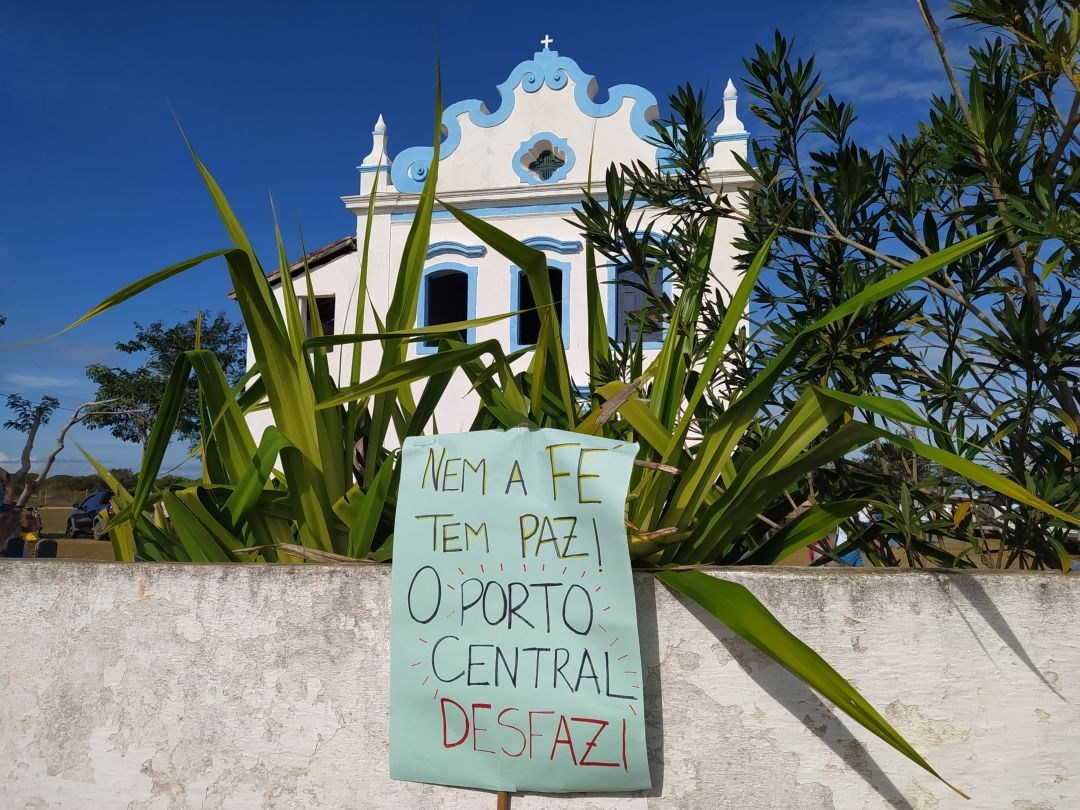 NEM A FE
TEM PAZ!
O PORTO
CENTRAL
DESFAZ!